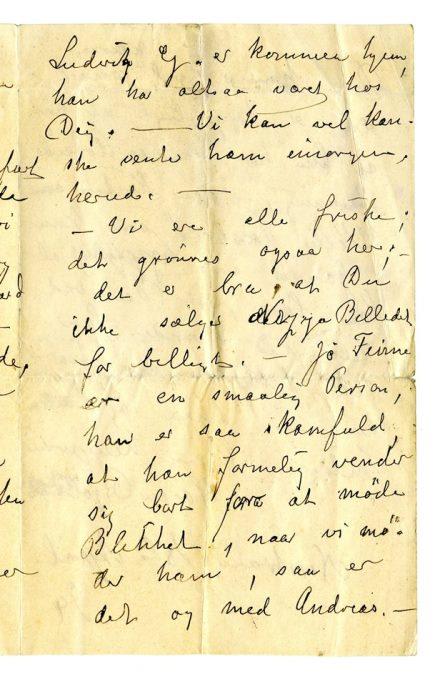 Ludvig g. er kommen hjem,
han har altsaa været hos
Dig. — Vi kan vel kan-
ske vente ham imorgen,
herude. —
— Vi ere alle friske;
det grønnes ogsaa her; —
det er bra at Du
ikke sælger Billedet
for billigt. — Jo Finne
er en smaalig Person,
han er saa skamfuld,
at han formelig vender
sig bort for at møde
Blikket, naar vi mø-
der ham, saa er
det og med Andreas. —